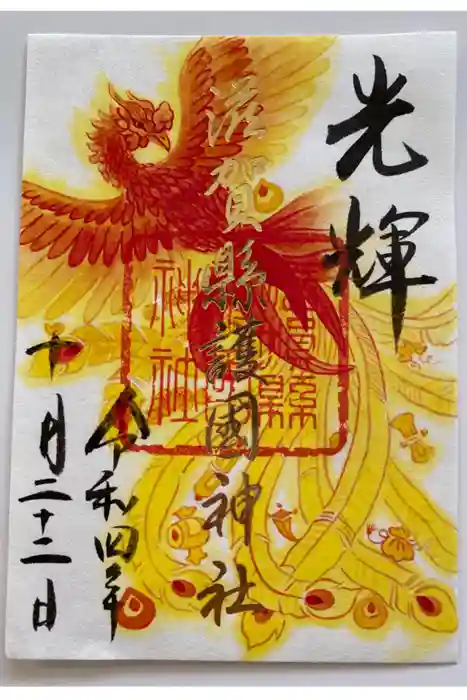 光輝
滋賀縣護國神社
令和四年
十月二十二日